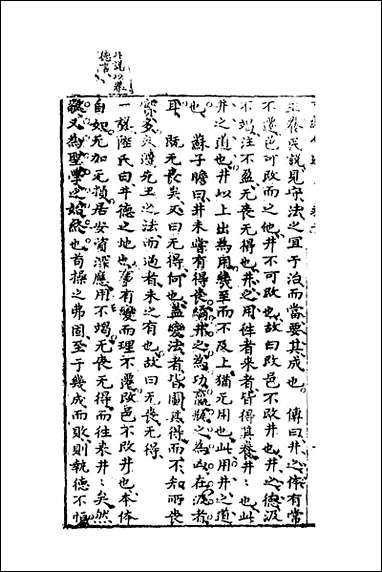 此說以養
德言
主養民說見守法之宜于治而當要其成也　傳曰井之体有常
不遷邑可改而之他井不可改也故曰改邑不改井也井之德汲
不竭注不盈无喪无得也井之用往者來者皆得其養井〻也此
井之道也井以上出為用幾至而不及上猶无用也此用井之道
也　蘇子瞻曰井未嘗有得喪繘井之為功羸瓶之為凶在汲者
耳　既无喪矣又曰无得何也蓋變法者皆圖其得而不知所喪
實多夫遵先王之法而過者未之有也故曰无喪无得
一說陸氏曰井德之地也事有變而理不遷改邑不改井也本体
自如无加无損居安資深應用不竭无喪无得而往來井〻矣然
敬又為聖學之始終也苟操之弗固至于幾成而敗則執德不恒